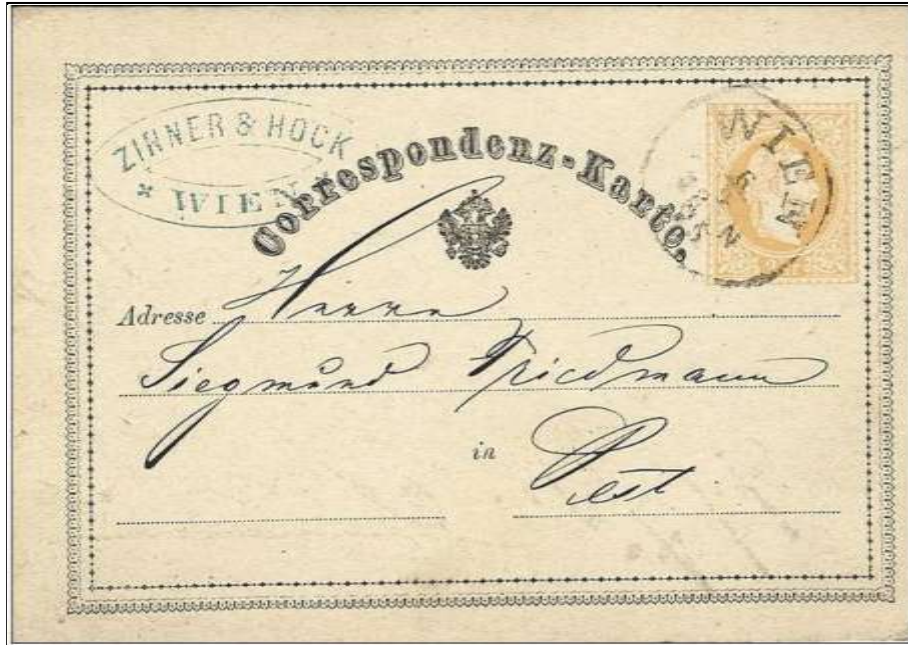 ZIRNER & HOCK
* WIEN *
Correspondenz-Karte.
WIEN
6
5 N
Adresse Herrn
Siegmund Friedmann
in Pest